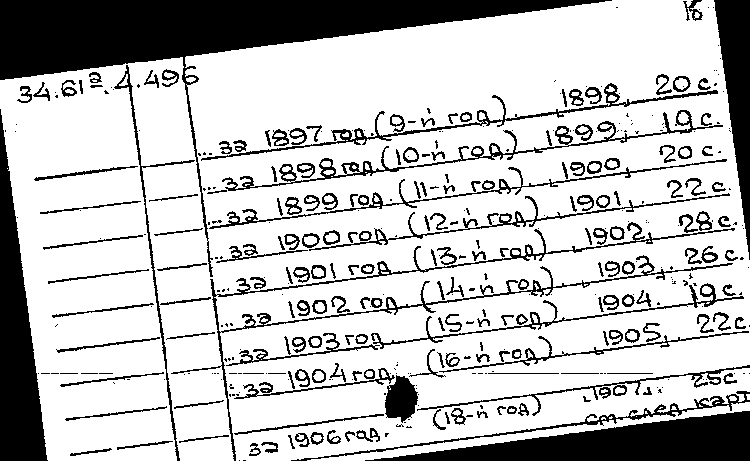 18
34.61². 4.496
... за 1897 год. (9-й год). [1898]. 20 с.
... за 1898 год (10-й год.) [1899]. 19 с.
... за 1899 год. (11-й год) [1900]. 20 с.
... за 1900 год. (12-й год.) [1901]. 22 с.
... за 1901 год (13-й год) [1902]. 28 с.
... за 1902 год. (14-й год.) [1903]. 26 с.
... за 1903 год. (15-й год). 1904. 19 с.
... за 1904 год (16-й год). [1905]. 22 с.
за 1906 год. (18-й год) [1907]. 25 с
см. след. карт